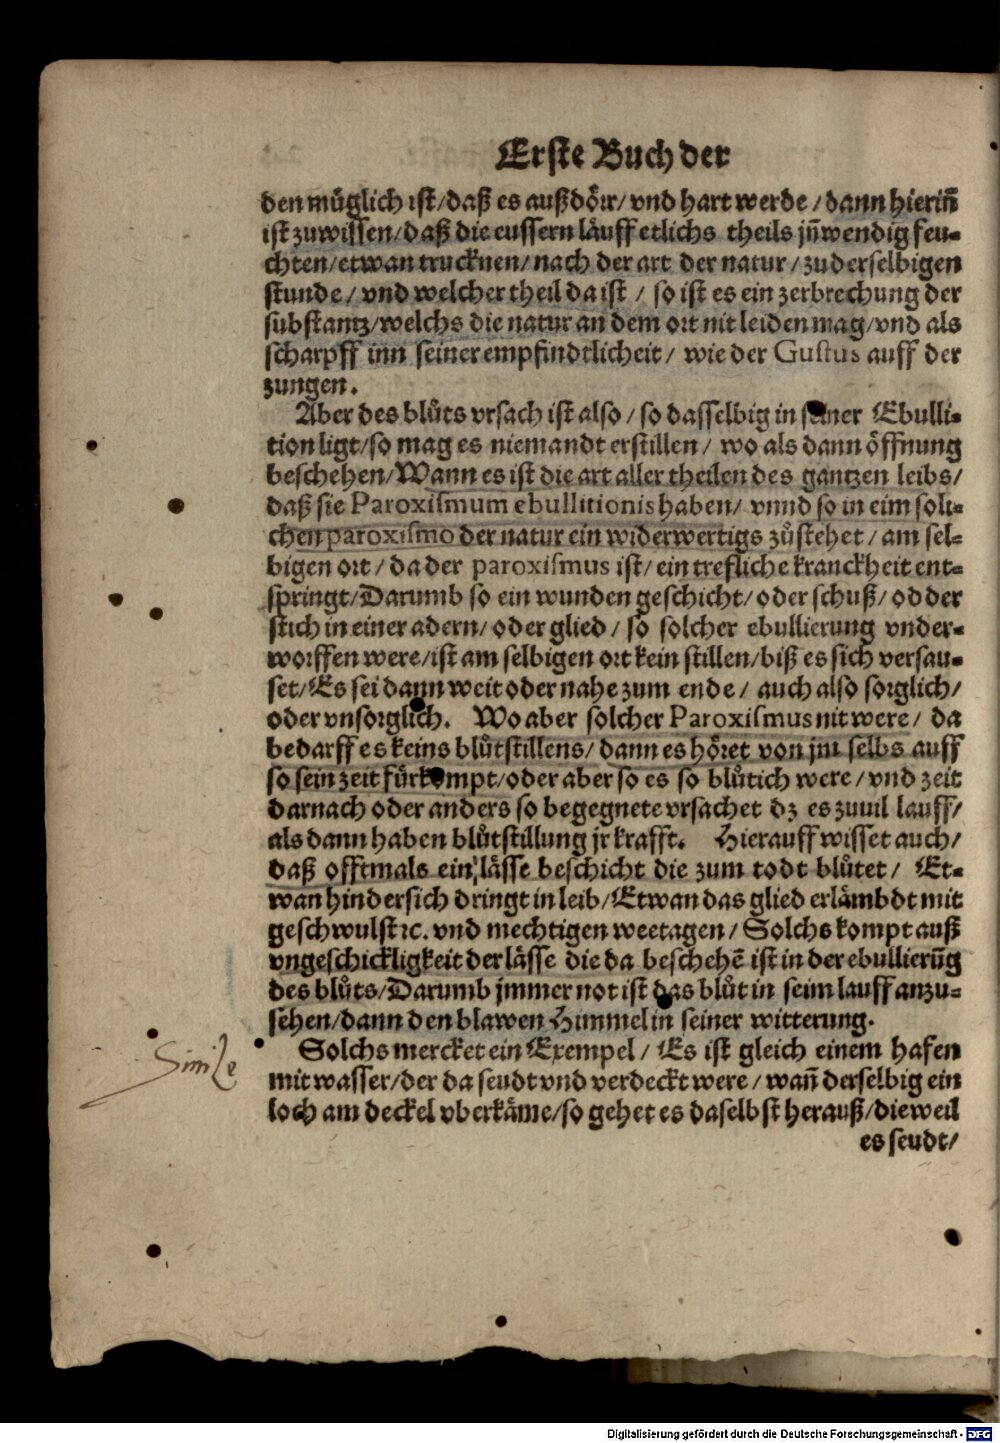 Erste Buch der
den müglich ist/daß es außdörr/vnd hart werde/dann hieriñ
ist zuwissen/daß die eussern läuff etlichs theils jñwendig feu-
chten/etwan trucknen/nach der art der natur/zu derselbigen
stunde/vnd welcher theil da ist/so ist es ein zerbrechung der
substantz/welchs die natur an dem ort nit leiden mag/vnd als
scharpff inn seiner empfindtlicheit/wie der Gustus auff der
zungen.
Aber des blůts vrsach ist also/so dasselbig in seiner Ebulli-
tion ligt/so mag es niemandt erstillen/wo als dann öffnung
beschehen/Wann es ist die art aller theilen des gantzen leibs/
daß sie Paroxismum ebullitionis haben/vnnd so in eim soli-
chen paroxismo der natur ein widerwertigs zůstehet/am sel-
bigen ort/da der paroxismus ist/ein trefliche kranckheit ent-
springt/Darumb so ein wunden geschicht/oder schuß/odder
stich in einer adern/oder glied/so solcher ebullierung vnder-
worffen were/ist am selbigen ort kein stillen/biß es sich versau-
set/Es sei dann weit oder nahe zum ende/auch also sorglich/
oder vnsorglich. Wo aber solcher Paroxismus nit were/da
bedarff es keins blůtstillens/dann es höret von jm selbs auff
so sein zeit fürkompt/oder aber so es so blůtich were/vnd zeit
darnach oder anders so begegnete vrsachet dz es zuuil lauff/
als dann haben blůtstillung jr krafft. Hierauff wisset auch/
daß offtmals ein lässe beschicht die zum todt blůtet/Et-
wan hindersich dringt in leib/Etwan das glied erlämbdt mit
geschwulst ꝛc. vnd mechtigen weetagen/Solchs kompt auß
vngeschickligkeit der lässe die da beschehẽ ist in der ebullierũg
des blůts/Darumb jmmer not ist das blůt in seim lauff anzu-
sehen/dann den blawen Himmel in seiner witterung.
Simile
Solchs mercket ein Exempel/Es ist gleich einem hafen
mit wasser/der da seudt vnd verdeckt were/wañ derselbig ein
loch am deckel vberkäme/so gehet es daselbst herauß/dieweil
es seudt/
Digitalisierung gefördert durch die Deutsche Forschungsgemeinschaft - DFG